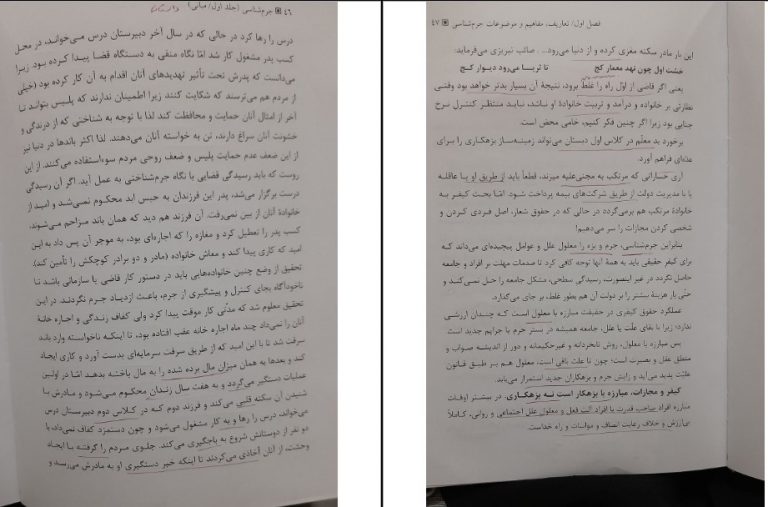 ۴۶ جرم‌شناسی (جلد اول/ مبانی)
درس را رها کرد در حالی که در سال آخر دبیرستان درس می‌خواند، در محل
کسب پدر مشغول کار شد امّا نگاه منفی به دستگاه قضا پیدا کرده بود. زیرا
می‌دانست که پدرش تحت تأثیر تهدیدهای آنان اقدام به آن کار کرده بود (خیلی
از مردم هم می‌ترسند که شکایت کنند زیرا اطمینان ندارند که پلیس بتواند تا
آخر از امثال آنان حمایت و محافظت کند لذا با توجه به شناختی که از درندگی و
خشونت آنان سراغ دارند، تن به خواسته آنان می‌دهند. لذا اکثر باندها در دنیا نیز
از این ضعف عدم حمایت پلیس و ضعف روحی مردم سوءاستفاده می‌کنند. از این
روست که باید رسیدگی قضایی با نگاه جرم‌شناختی به عمل آید. اگر آن رسیدگی
درست برگزار می‌شد، پدر این فرزندان به حبس ابد محکوم نمی‌شد و امید از
خانوادهٔ آنان از بین نمی‌رفت. آن فرزند هم دید که همان باند مزاحم می‌شوند،
کسب پدر را تعطیل کرد و مغازه را که اجاره‌ای بود، به موجر آن پس داد به این
امید که کاری پیدا کند و معاش خانواده (مادر و دو برادر کوچکش را تأمین کند).
تحقیق از وضع چنین خانواده‌هایی باید در دستور کار قاضی یا سازمانی باشد تا
ناخودآگاه بجای کنترل و پیشگیری از جرم، باعث ازدیاد جرم نگردند. در این
تحقیق معلوم شد که مدتی کار موقت پیدا کرد ولی کفاف زندگی و اجاره خانهٔ
آنان را نمی‌داد چند ماه اجاره خانه عقب افتاده بود، تا اینکه ناخواسته وارد باند
سرقت شد تا با این امید که از طریق سرقت سرمایه‌ای بدست آورد و کاری ایجاد
کند و بعدها به همان میزان مال برده شده را به مال باخته بدهد امّا در اولین
عملیات دستگیر می‌گردد و به هفت سال زندان محکوم می‌شود و مادرش با
شنیدن آن سکته قلبی می‌کند و فرزند دوم که در کلاس دوم دبیرستان درس
می‌خواند، درس را رها و به کار مشغول می‌شود و چون دستمزد کفاف نمی‌داد، با
دو نفر از دوستانش شروع به باجگیری می‌کند. جلوی مردم را گرفته با ایجاد
وحشت، از آنان اخاذی می‌کردند تا اینکه خبر دستگیری او به مادرش می‌رسد و
فصل اول/ تعاریف، مفاهیم و موضوعات جرم‌شناسی ۴۷
این بار مادر سکته مغزی کرده و از دنیا می‌رود... صائب تبریزی می‌فرماید:
خشت اول چون نهد معمار کج تا ثریا می‌رود دیوار کج
یعنی اگر قاضی از اول راه را غلط برود، نتیجهٔ آن بسیار بدتر خواهد بود وقتی
نظارتی بر خانواده و درآمد و تربیت خانوادهٔ او نباشد، نباید منتظر کنترل نرخ
جنایی بود زیرا اگر چنین فکر کنیم، خامی محض است.
برخورد بد معلّم در کلاس اول دبستان می‌تواند زمینه‌ساز بزهکاری را برای
عده‌ای فراهم آورد.
آری خساراتی که مرتکب به مجنی‌علیه میزند، قطعاً باید از طریق او یا عاقله
یا با مدیریت دولت از طریق شرکت‌های بیمه پرداخت شود. امّا بحث کیفر به
خانوادهٔ مرتکب هم برمی‌گردد در حالی که در حقوق شعار، اصل فردی کردن و
شخصی کردن مجازات را سر می‌دهیم!
بنابراین جرم‌شناسی، جرم و بزه را معلول علل و عوامل پیچیده‌ای می‌داند که
برای کیفر حقیقی باید به همهٔ آنها توجه کافی کرد تا صدمات مهلت بر افراد و جامعه
حاصل نگردد در غیر اینصورت، رسیدگی سطحی، مشکل جامعه را حل نمی‌کند و
حتّی بار هزینهٔ بیشتر را بر دولت آن هم بطور غلط، بر جای می‌گذارد.
عملکرد حقوق کیفری در حقیقت مبارزه با معلول است که چندان ارزشی
ندارد؛ زیرا با بقای علّت یا علل، جامعه همیشه در بستر جرم یا جرایم جدید است
پس مبارزه با معلول، روش نابخردانه و غیرحکیمانه و دور از اندیشه صواب و
منطق عقل و بصیرت است؛ چون تا علت باقی است، معلول هم بر طبق قانون
علیّت پدید می‌آید و زایش جرم و بزهکاران جدید استمرار می‌یابد.
کیفر و مجازات، مبارزه با بزهکار است نه بزهکاری. در بیشتر اوقات
مبارزه افراد صاحب قدرت با افراد الت فعل و معلول علل اجتماعی و روانی، کاملاً
بی‌ارزش و خلاف رعایت انصاف و مواسات و راه خداست.